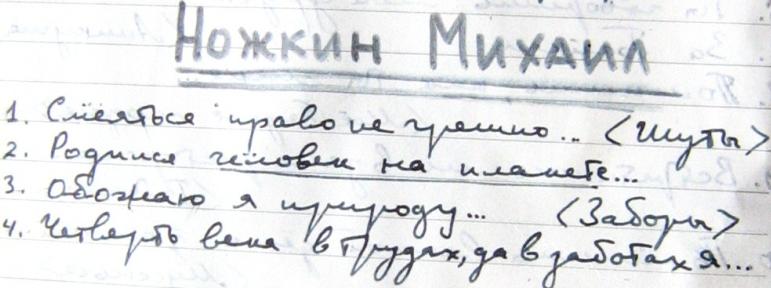 Ножкин Михаил
1. Смеяться право не грешно... <Шуты>
2. Родился человек на планете...
3. Обожаю я природу... <Заборы>
4. Четверть века в трудах, да в заботах я...